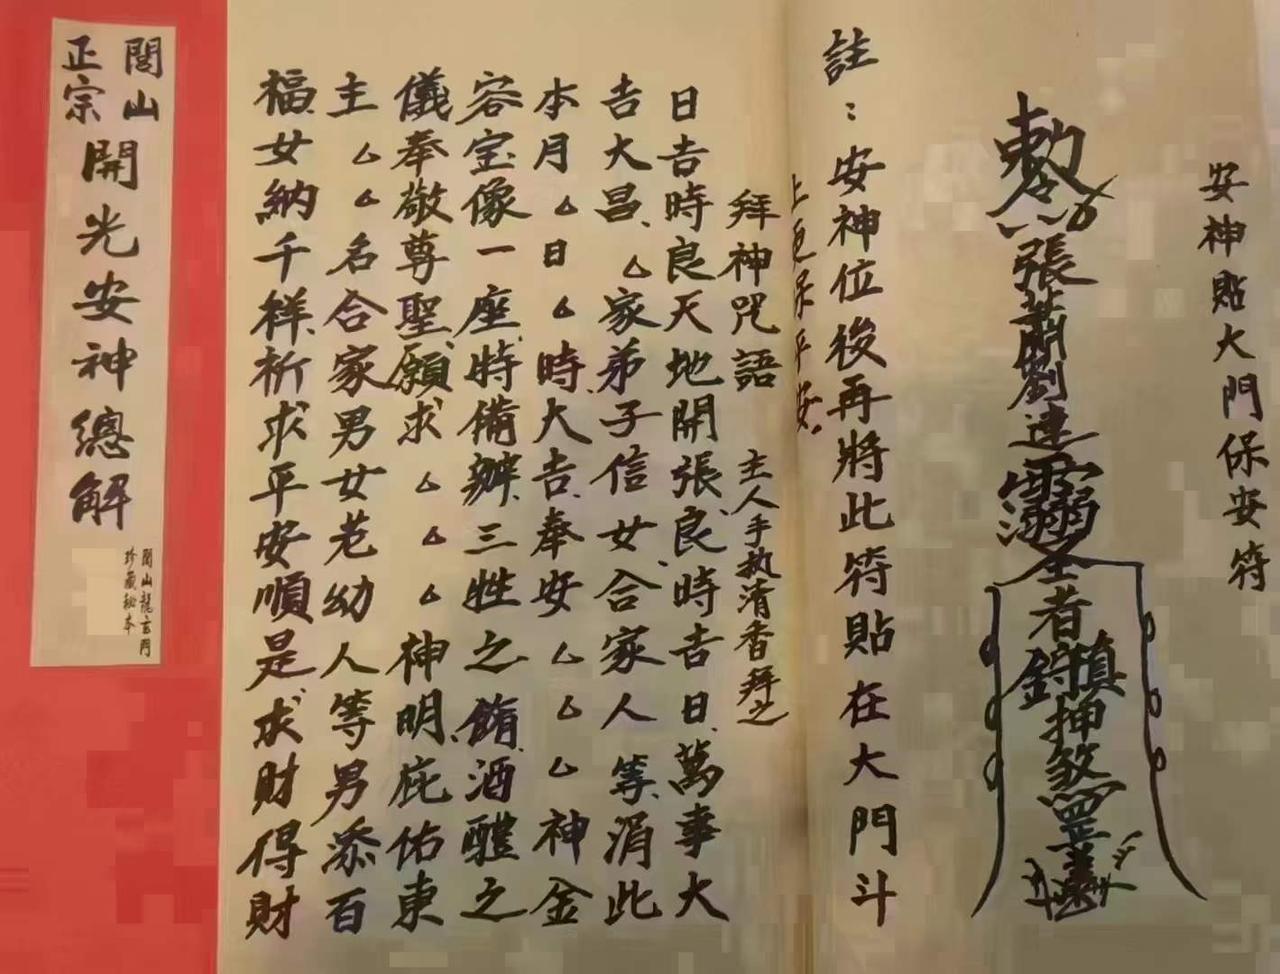 安神貼大門保安符
敕
張蕭劉連
聖者
鎮押煞罡
註：安神位後再將此符貼在大門斗
上邑保平安。
拜神咒語 主人手执清香拜之
日吉時良天地開張、良時吉日、萬事大
吉大昌、△家弟子信女合家人等、涓此
本月△日△時、大吉、奉安△△△神金
容宝像一座、特備辦、三牲之餚、酒醴之
儀奉敬尊聖、願求△△△神明、庇佑東
主△△名合家男女老幼人等男添百
福、女納千祥、祈求平安順是、求財得財
閭山正宗
開光安神總解
閭山龍玄門
珍藏秘本